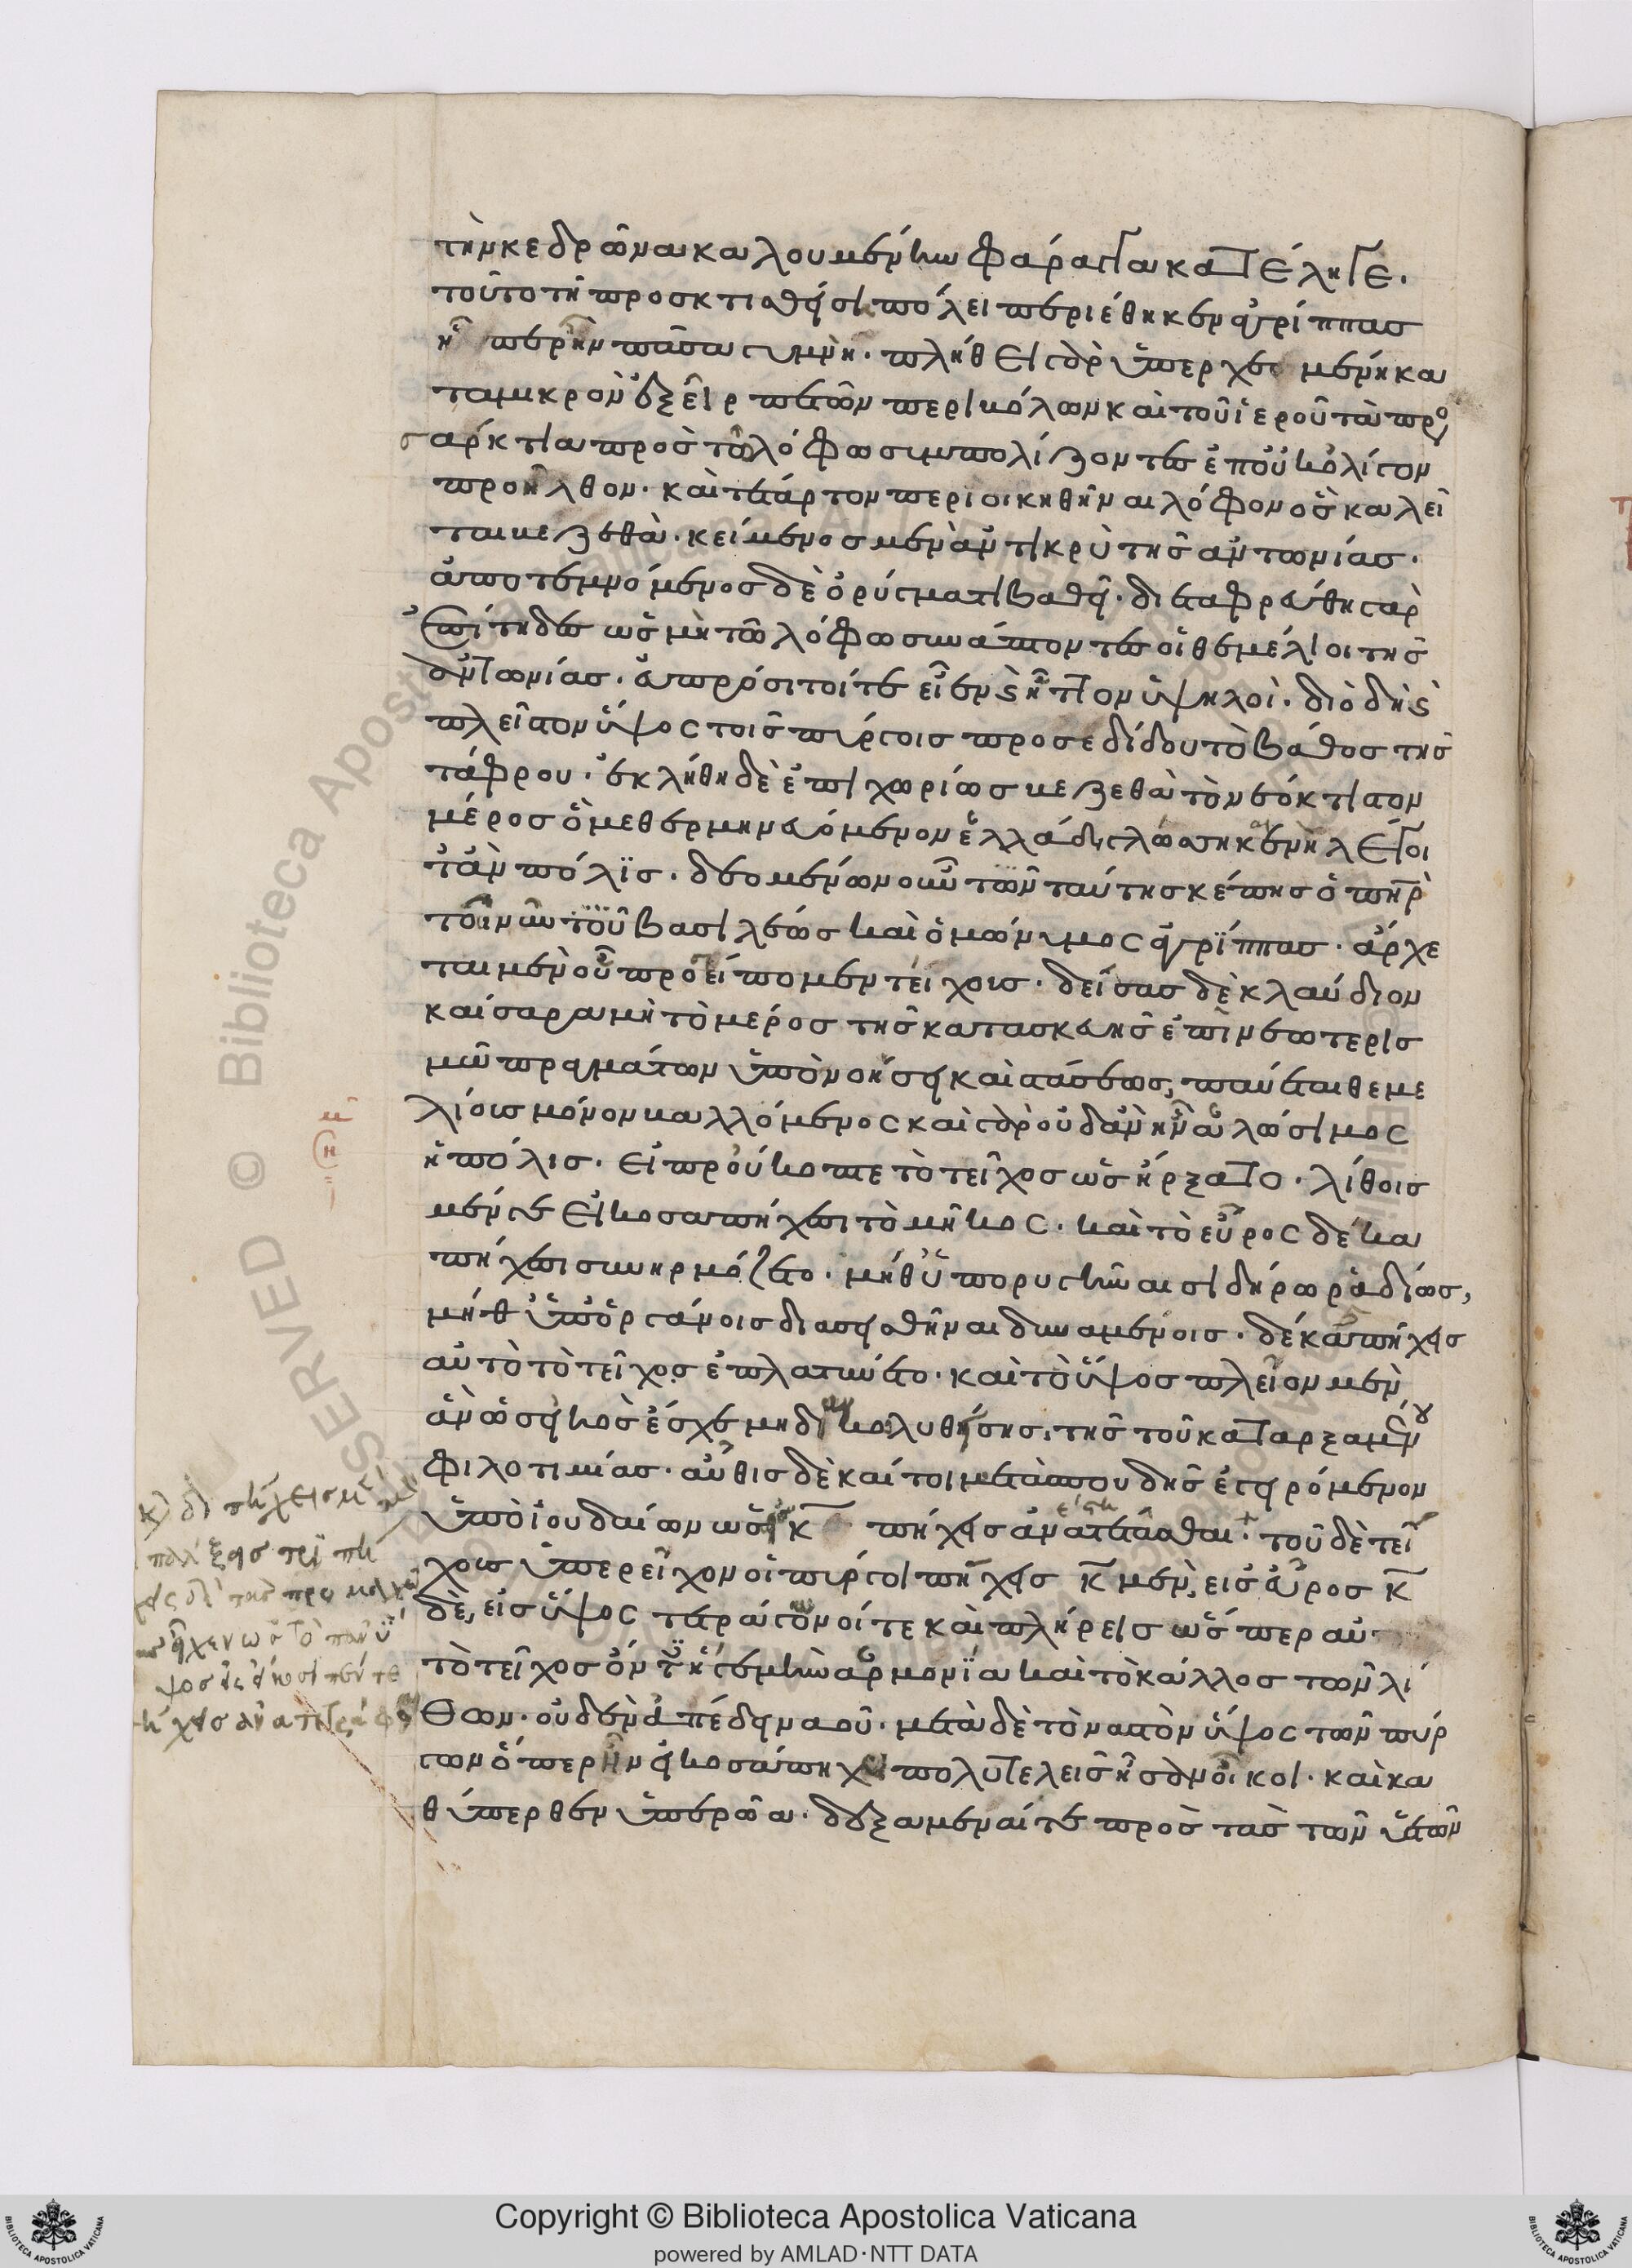 τὴν κεδρῶνα καλουμένην φάραγγα κατέληγε.
τοῦτο τῇ προσκτισθείσῃ πόλει περιέθηκεν ἀγρίππας
ἥπερ ἦν πᾶσα γυμνή. πλήθει γὰρ ὑπερχεομένη κα
τὰ μικρὸν ἐξεῖρπε τῶν περιβόλων καὶ τοῦ ἱεροῦ τὰ προσ
άρκτια πρὸς τῷ λόφῳ συμπολίζοντες ἐπ' οὐκ ὀλίγον
προῆλθον. καὶ τέταρτον περιοικηθῆναι λόφον ὃς καλεῖ
ται βεζεθά. κείμενος μὲν ἀντικρὺ τῆς ἀντωνίας.
ἀποτεμνόμενος δὲ ὀρύγματι βαθεῖ. διεταφρεύθη γὰρ
ἐπίτηδες ὡς μὴ τῷ λόφῳ συνάπτοντες οἱ θεμέλιοι τῆς
ἀντωνίας. εὐπρόσιτοί τε εἶεν καὶ ἧττον ὑψηλοί. διὸ δὴ καὶ
πλεῖστον ὕψος τοῖς πύργοις προσεδίδου τὸ βάθος τῆς
τάφρου. ἐκλήθη δὲ ἐπιχωρίως βεζεθὰ τὸ νεόκτιστον
μέρος ὃ μεθερμηνευόμενον ἑλλάδι γλώσσῃ καινὴ λέγοι
τ' ἂν πόλις. δεομένων οὖν τῶν ταύτῃ σκέπης ὁ πατὴρ
τοῦ νῦν τοῦ βασιλέως καὶ ὁμώνυμος ἀγρίππας. ἄρχε
ται μὲν οὗ προείπομεν τείχους. δείσας δὲ κλαύδιον
καίσαρα μὴ τὸ μέρος τῆς κατασκευῆς ἐπὶ νεωτερισ
μῷ πραγμάτων ὑπονοήσῃ καὶ στάσεως, παύεται θεμε
λίους μόνον βαλλόμενος καὶ γὰρ οὐδ' ἂν ἦν ἁλώσιμος
ἡ πόλις. εἰ προύκοπτε τὸ τεῖχος ὡς ἤρξατο. λίθοις
μέν γε εἰκοσαπήχεσι τὸ μῆκος. καὶ τὸ εὖρος δεκα
πήχεσι συνηρμόζετο. μήθ' ὑπορυγῆναι σιδήρῳ ῥαδίως,
μήθ' ὑπ' ὀργάνοις διασεισθῆναι δυναμένοις. δέκα πήχεις
αὐτὸ τὸ τεῖχος ἐπλατύνετο. καὶ τὸ ὕψος πλεῖον μὲν
ἂν ὡς εἰκὸς ἔσχε μὴ διακωλυθείσης τῆς τοῦ καταρξαμένου
φιλοτιμίας. αὖθις δὲ καίτοι μετὰ σπουδῆς ἐγειρόμενον
ὑπὸ ἰουδαίων ὡς εἰς κ πήχεις ἀνέστη. τοῦ δὲ τεί
χους ὑπερεῖχον οἱ πύργοι πήχεις κ μέν, εἰς εὖρος κ
δὲ, εἰς ὕψος τετράγωνοί τε καὶ πλήρεις ὥσπερ αὐ
τὸ τεῖχος ὄντες ἥ γε μὴν ἁρμονία καὶ τὸ κάλλος τῶν λί
θων. οὐδὲν ἀπέδει ναοῦ. μετὰ δὲ τὸ ναστὸν ὕψος τῶν πύρ
γων ὅπερ ἦν εἰκοσάπηχυ πολυτελεῖς ἦσαν οἶκοι. καὶ κα
θύπερθεν ὑπερῷα. δεξαμεναί τε πρὸς τὰς τῶν ὑετῶν